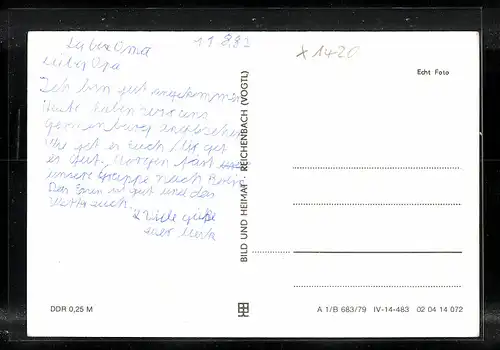 Liebe Oma
11.8.82
x 1420
Lieber Opa
Echt Foto
Ich bin gut angekommen
Heute haben wir uns
angesehen
Wie get es Euch Mir get
es gut. Morgen färt
unsere Gruppe nach Berlin
Das Essen ist gut und das
Wetter auch.
Viele grüße
euer
BILD UND HEIMAT REICHENBACH (VOGTL)
DDR 0,25 M
A 1/B 683/79 IV-14-483 02 04 14 072